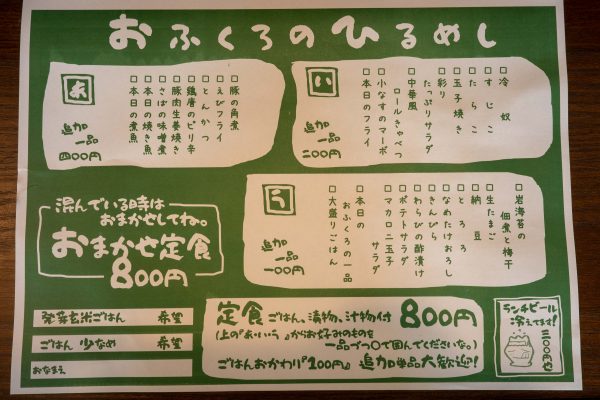 おふくろのひるめし
あ
追加
一品
四〇〇円
□豚の角煮
□えびフライ
□とんかつ
□鶏唐のピリ辛
□豚肉生姜焼き
□さばの味噌煮
□本日の焼き魚
□本日の煮魚
い
追加
一品
二〇〇円
□冷奴
□すじこ
□たらこ
□玉子焼き
□彩り
たっぷりサラダ
□中華風
ロールきゃべつ
□小なすのマーボ
□本日のフライ
う
追加
一品
一〇〇円
□岩海苔の
佃煮と梅干
□生たまご
□納豆
□とろろ
□なめたけおろし
□きんぴら
□わらびの酢漬け
□ポテトサラダ
□マカロニ玉子
サラダ
□本日の
おふくろの一品
□大盛りごはん
混んでいる時は
おまかせしてね。
おまかせ定食
800円
発芽玄米ごはん 希望
ごはん 少なめ 希望
おなまえ
定食 ごはん、漬物、汁物付 800円
(上の『あ・い・う』からお好みのものを
一品づつ○で囲んでくださいな。)
ごはんおかわり『100円』 追加単品大歓迎!
ランチビール
冷えてます!